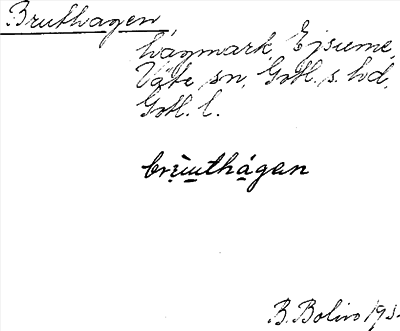 Bruthagen,
hagmark, Ejsume,
Väte sn, Gotl. s. hd,
Gotl. l.
brùuthágan
B. Bolin 193